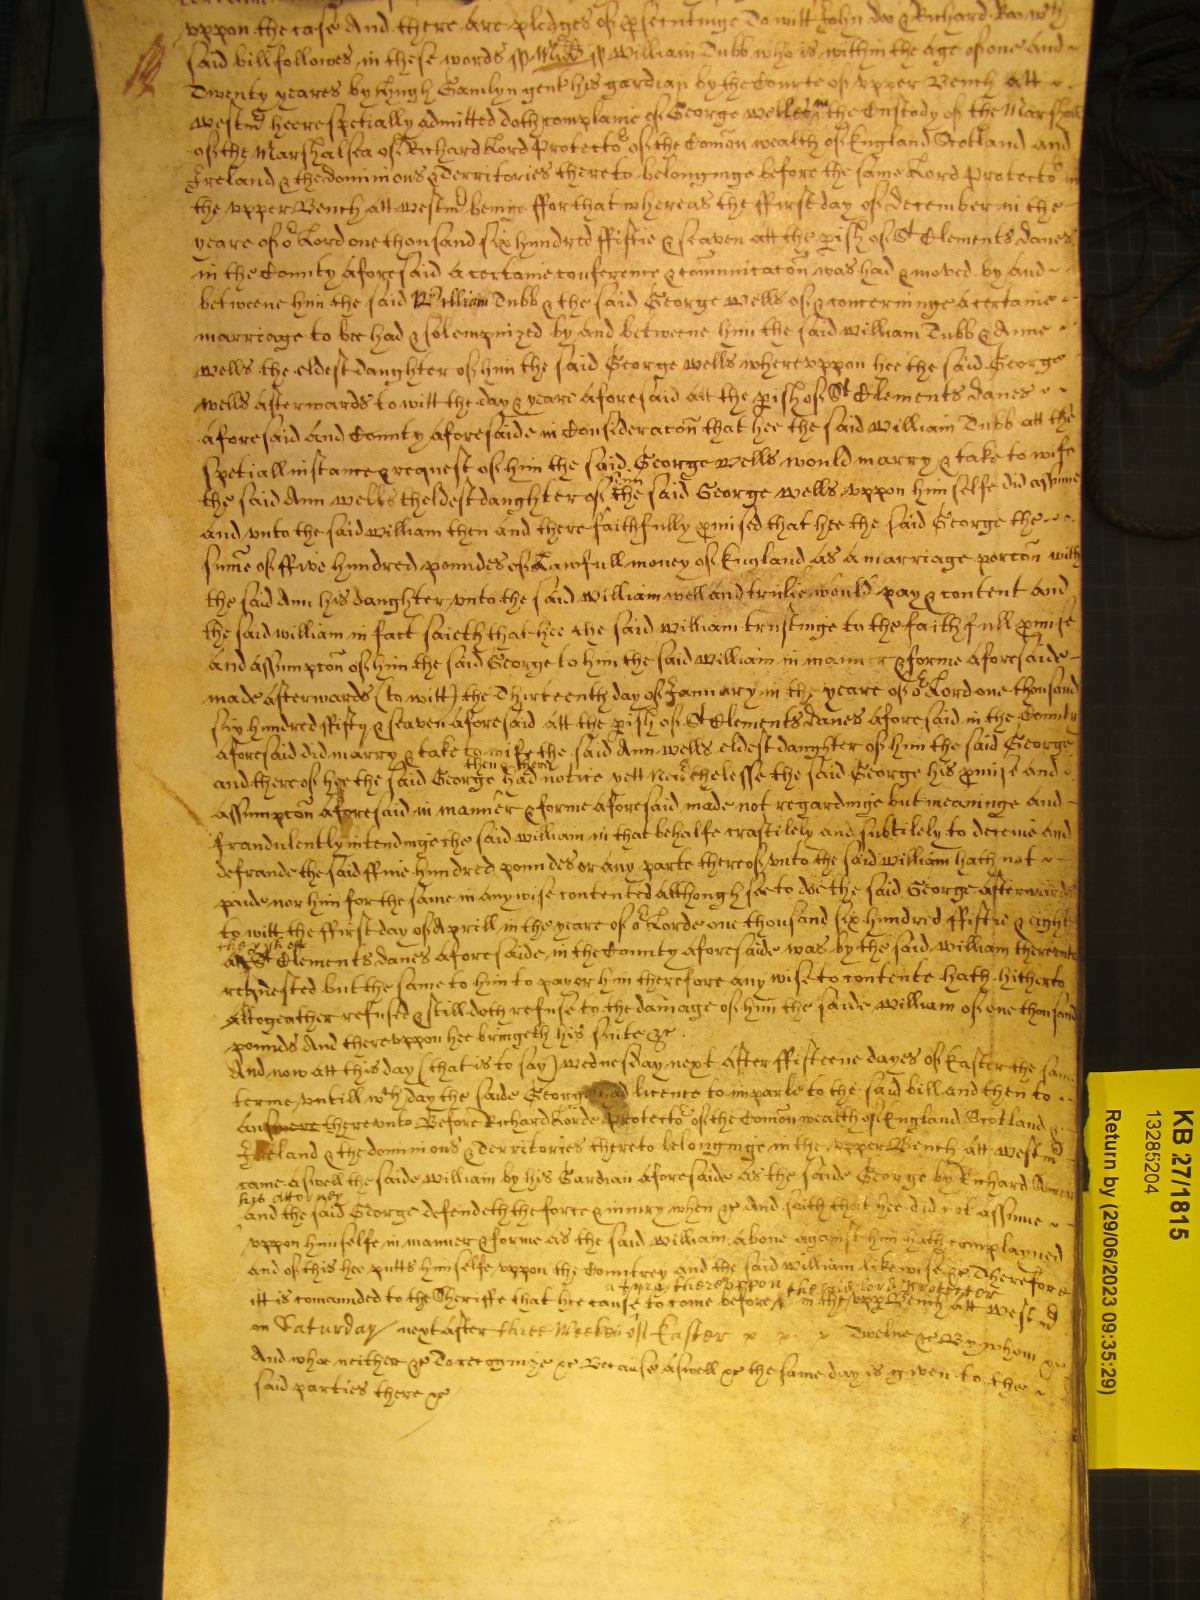 vppon the case And there are pledges of psecutinge To witt John doe & Richard Roe wch
said bill followes in these words ss Midd ss William Dubb who is within the age of one and
Twenty yeares by Hugh Gamlyn gent his gardian by the Courte of vpper Bench att
Westmr heere specially admitted doth complaine of George Wells in the Custody of the Marshall
of the Marshalsea of Richard Lord Protector of the Comon wealth of England Scotland and
Ireland & the dominions & Territories thereto belonginge before the same Lord Protector in
the vpper Bench att Westmr beinge ffor that whereas the ffirst day of december in the
yeare of or Lord one thousand six hundred ffiftie & seaven att the pish of St Clements danes
in the County aforesaid a certaine conference & comunicacon was had & moved by and
betweene him the said William Dubb & the said George Wells of & concerninge a certaine
marriage to bee had & solempnized by and betweene him the said William Dubb & Anne
Wells the eldest daughter of him the said George Wells wherevppon hee the said George
Wells afterwards to witt the day & yeare aforesaid att the pish of St Clements danes
aforesaid and County aforesaide in Consideracon that hee the said William Dubb att the
speciall instance & request of him the said George Wells would marry & take to wife
the said Ann Wells theldest daughter of him the said George Wells vppon himselfe did assume
and vnto the said William then and there faithfully pmised that hee the said George the
sume of ffive hundred poundes of Lawfull money of England as a marriage porcon with
the said Ann his daughter vnto the said William well and trulie would pay & content and
the said William in fact saieth that hee the said William trustinge to the faithfull pmise
and assumpcon of him the said George to him the said William in manner & forme aforesaide
made afterwards (to witt) the Thirteenth day of January in the yeare of or Lord one thousand
six hundred ffifty & seaven aforesaid att the pish of St Clements danes aforesaid in the County
aforesaid did marry & take to wife the said Ann Wells eldest daughter of him the said George
and thereof hee the said George then & there had notice yett Neverthelesse the said George his pmise and
assumpcon aforesaid in manner & forme aforesaid made not regardinge but meaninge and
fraudulently intendinge the said William in that behalfe craftilely and subtilely to deceive and
defraude the said ffive hundred poundes or any parte thereof vnto the said William hath not
paide nor him for the same in any wise contented although soe to doe the said George afterwards
to witt the ffirst day of Aprill in the yeare of or Lorde one thousand six hundred ffiftie & eight
att the pish of St Clements danes aforesaide in the County aforesaide was by the said William therevnto
requested but the same to him to pay or him therefore any wise to contente hath hitherto
altogeather refused & still doth refuse to the damage of him the saide William of one thousand
pounds And therevppon hee bringeth his suite &c
And now att this day (that is to say) Wednesday next after ffifteene dayes of Easter the same
terme vntill wch day the saide George had licence to imparle to the said bill and then to
answere therevnto Before Richard Lorde Protector of the Comon wealth of England Scotland &
Ireland & the dominions & Territories thereto belonginge in the vpper Bench att Westmr
came aswell the saide William by his Gardian aforesaide as the saide George by Richard
his attorney
and the said George defendeth the force & iniury when &c And saith that hee did not assume
vppon himselfe in manner & forme as the said William above against him hath complayned
and of this hee putts himselfe vppon the Countrey and the said William likewise &c Therefore
a Jury therevppon the said lord protector
itt is comaunded to the Sheriffe that hee cause to come before in the vpp Bench att Westmr
on Saturday next after three Weekes of Easter x x x Twelve &c By whom &c
And whoe neither &c To recognize &c Because aswell &c the same day is given to the
said parties there &c
KB 27/1815
13285204
Return by (29/06/2023 09:35:29)